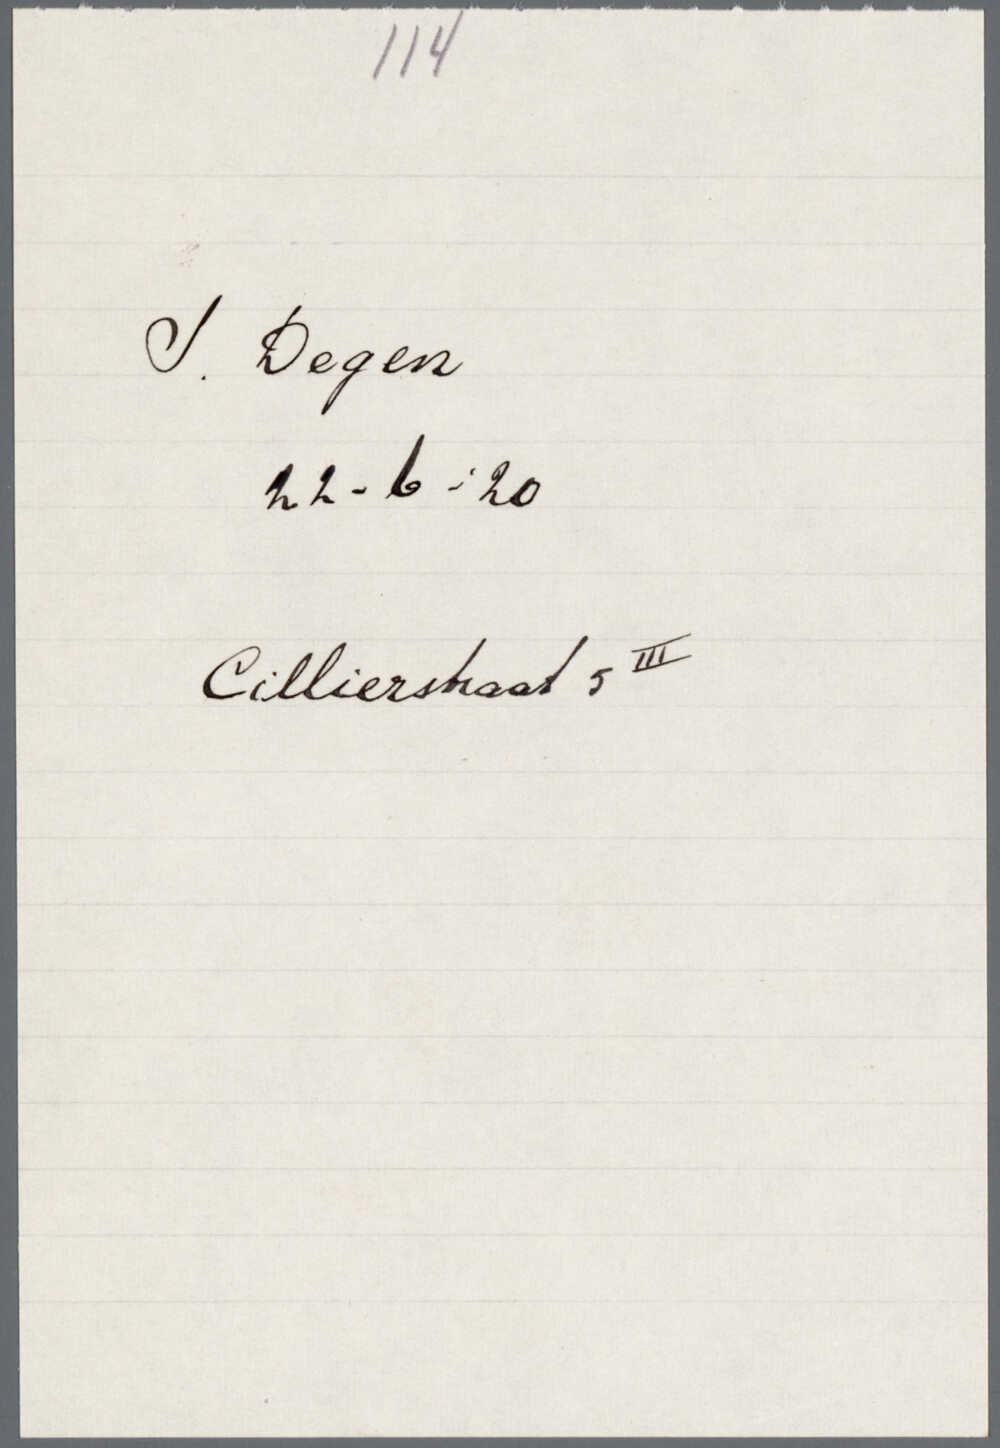 114
J. Degen
22-6-'20
Cillierstraat 5 III